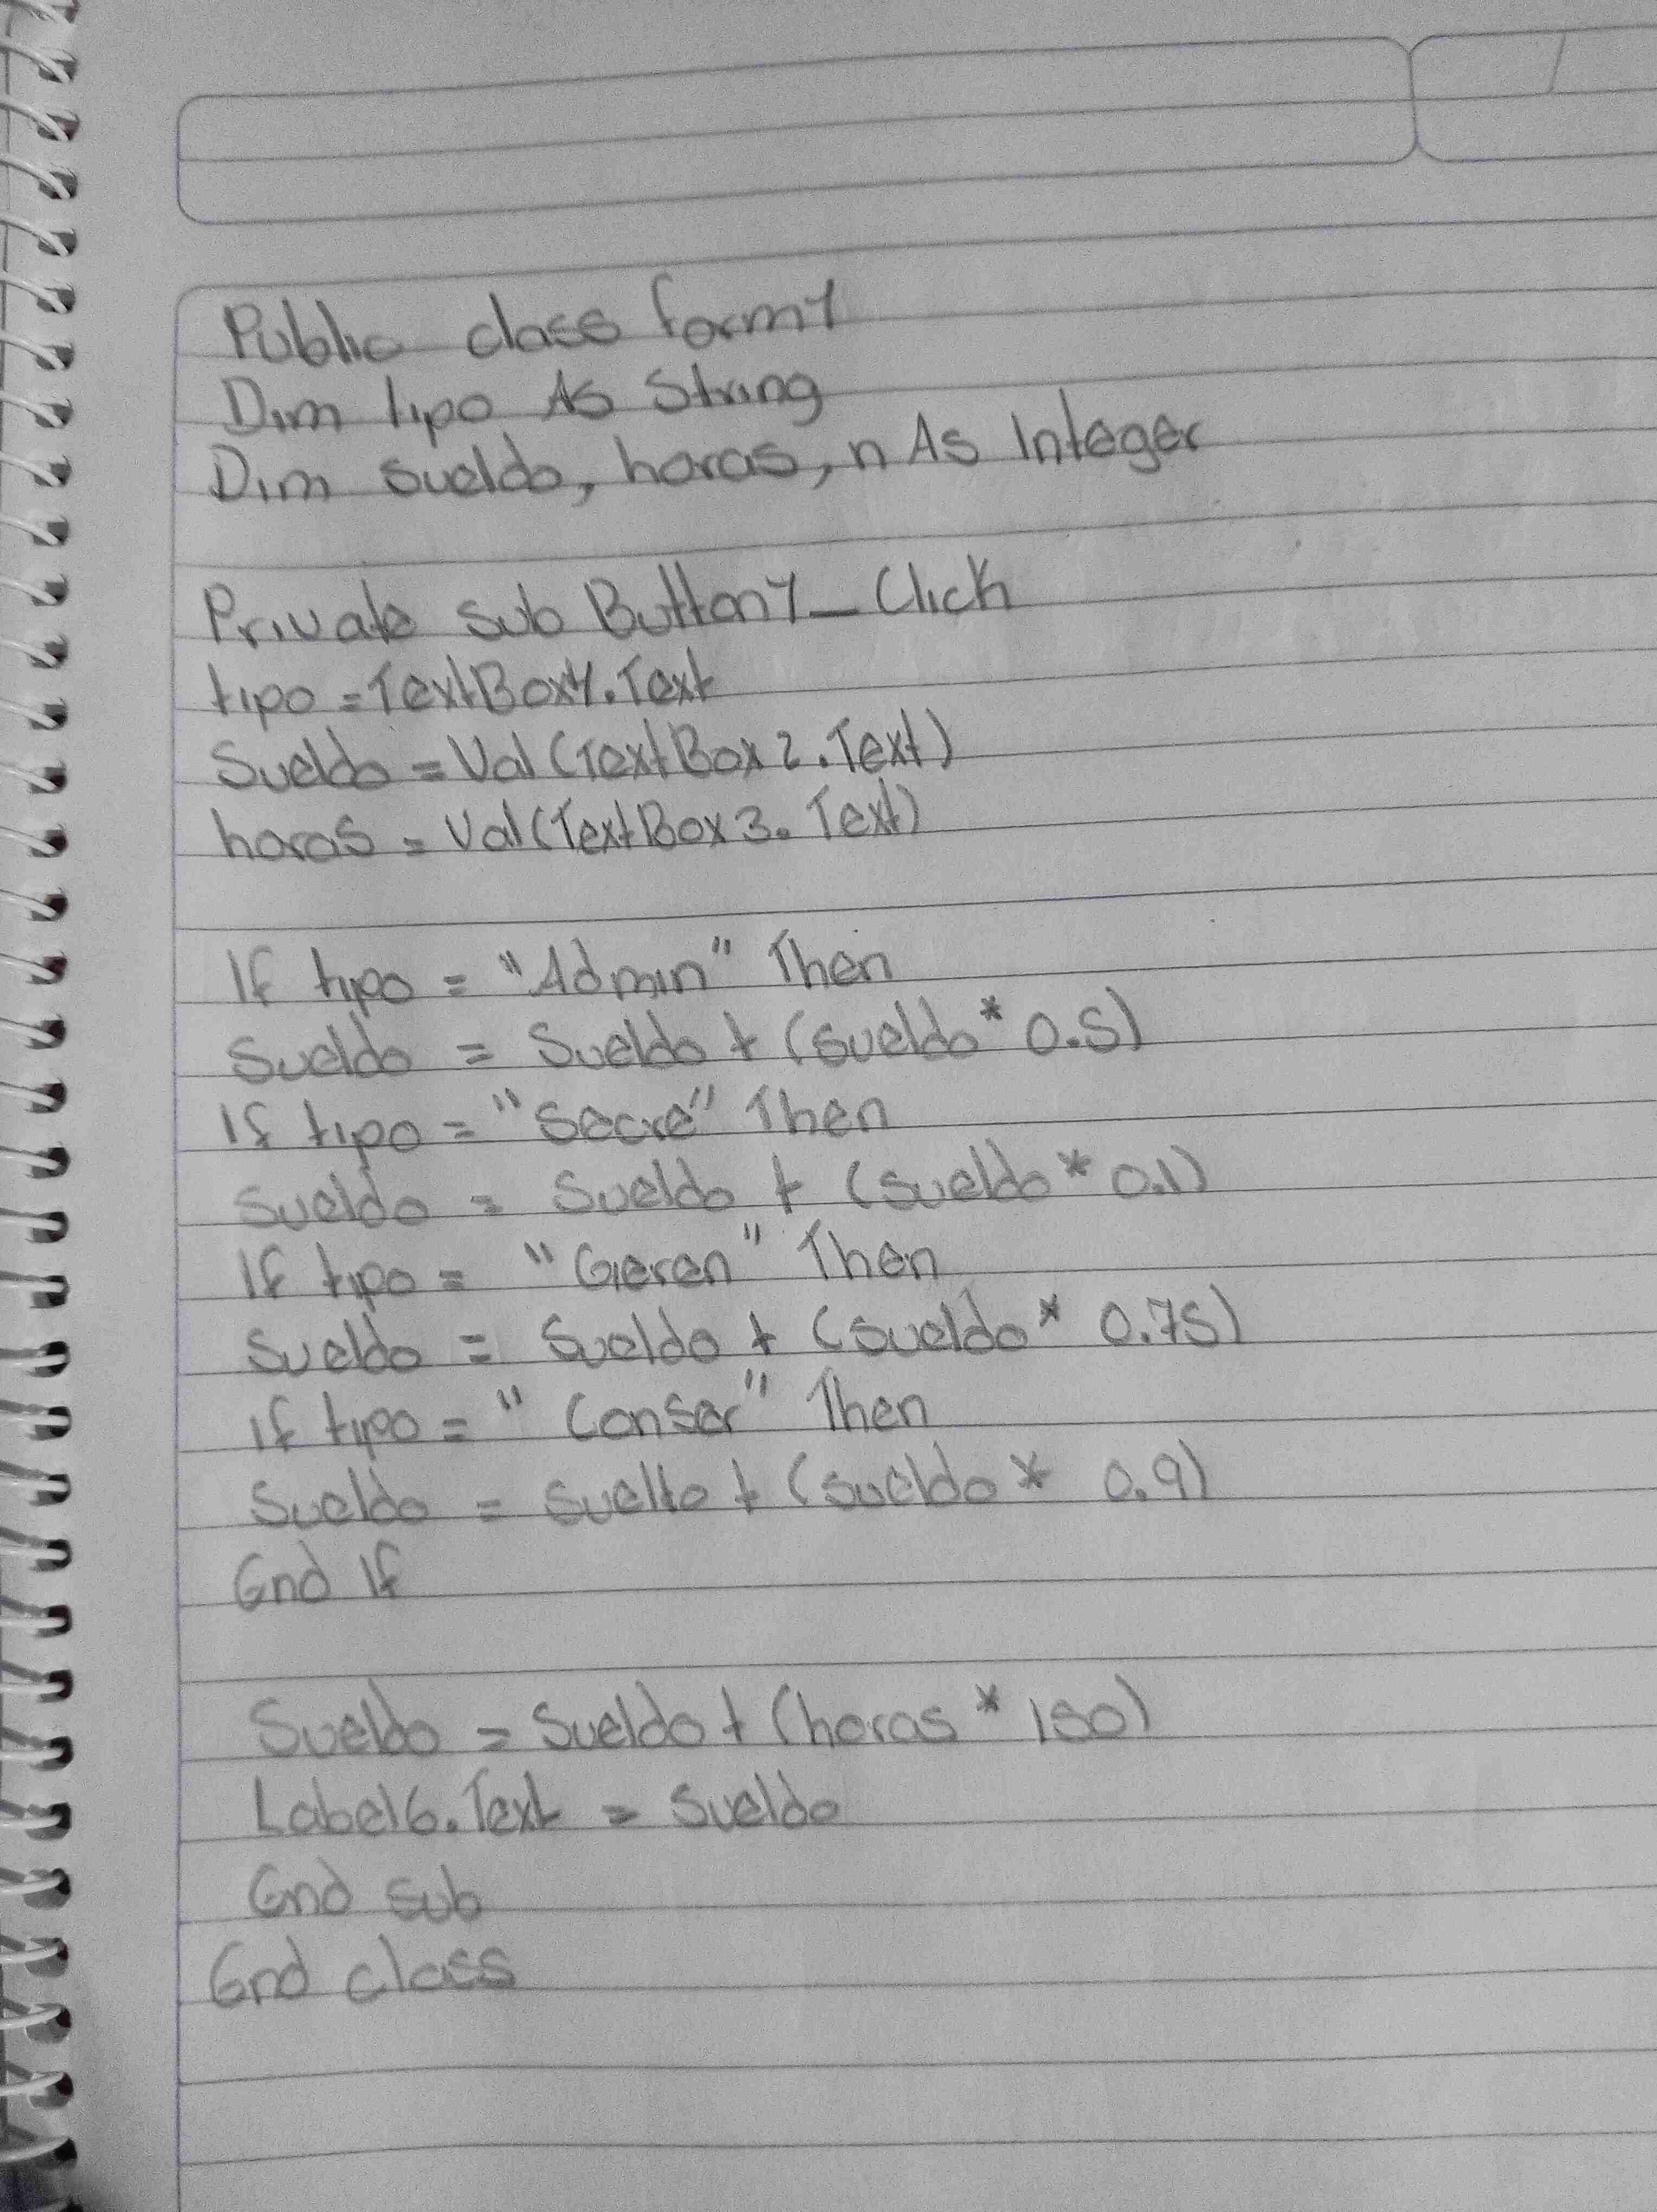 Public class form1
Dim tipo As String
Dim sueldo, horas, n As Integer
Private sub Button1_Click
tipo = TextBox1.Text
Sueldo = Val (TextBox2.Text)
horas = Val(TextBox3.Text)
If tipo = "Admin" Then
Sueldo = Sueldo + (sueldo * 0.5)
If tipo = "Secre" Then
Sueldo = Sueldo + (sueldo * 0.1)
If tipo = "Geren" Then
Sueldo = Sueldo + (sueldo * 0.75)
If tipo = "Conser" Then
Sueldo = suelto + (sueldo * 0.9)
End If
Sueldo = Sueldo + (horas * 150)
Label6.Text = Sueldo
End sub
End class